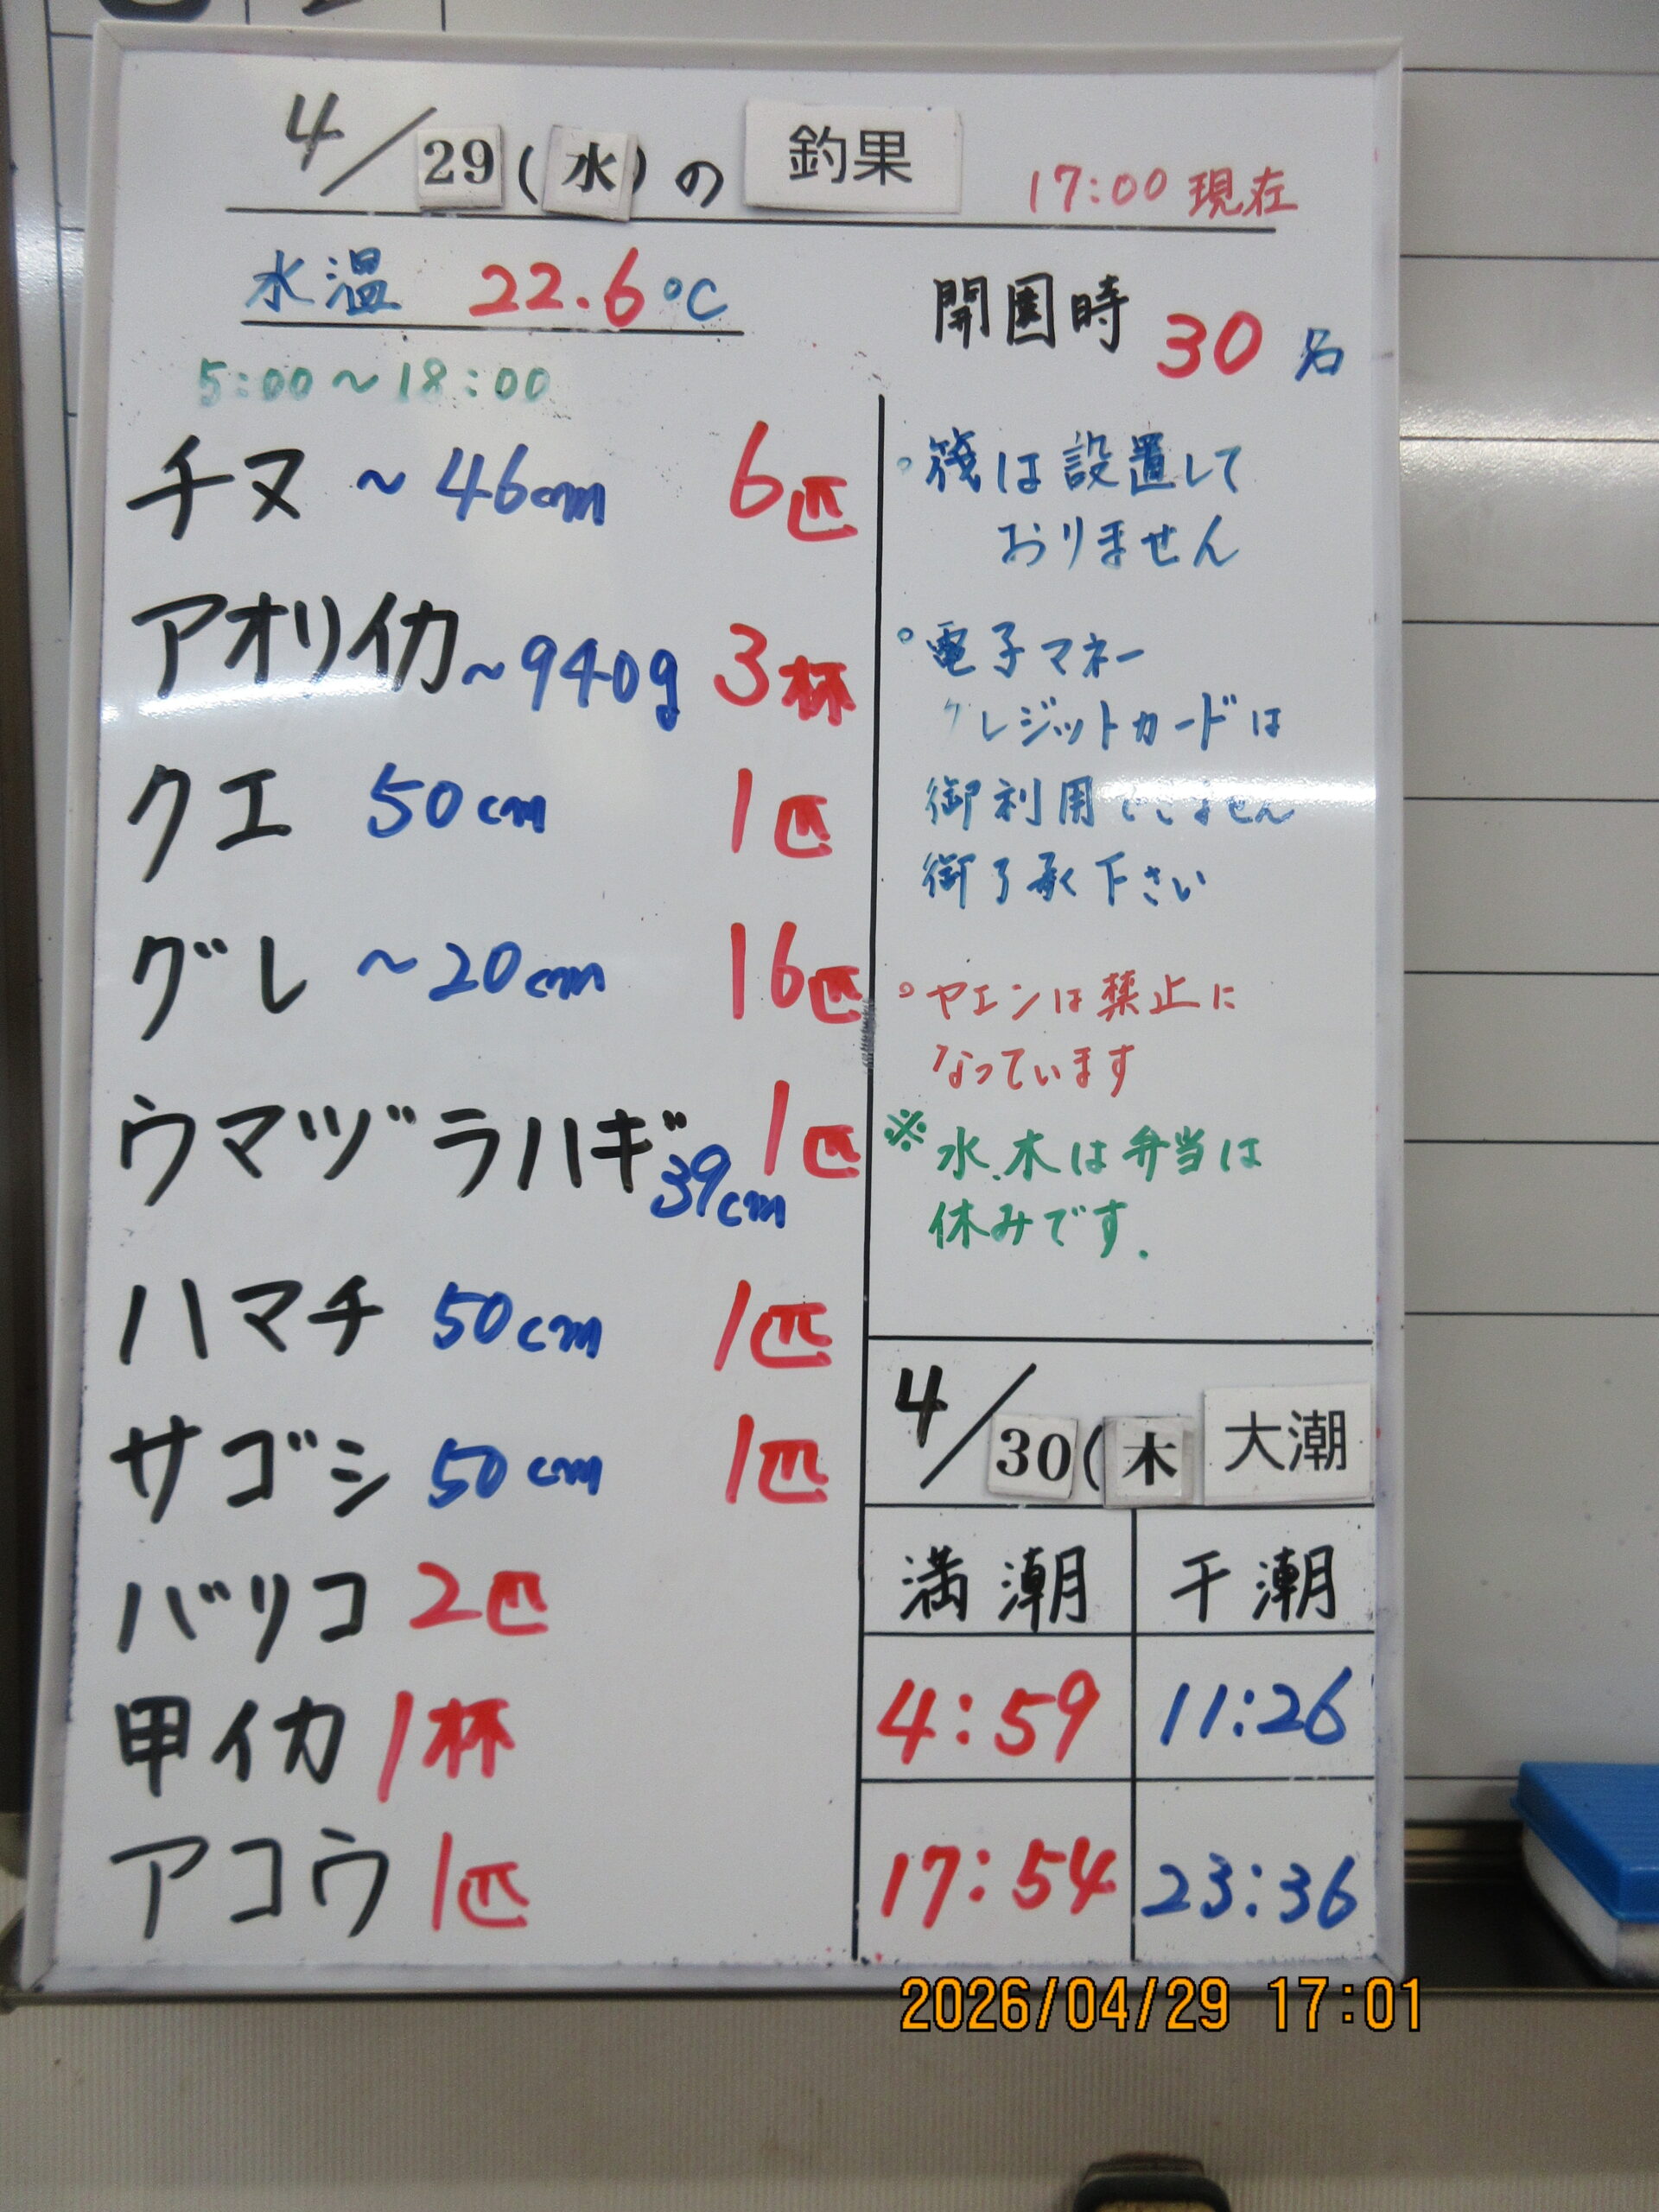 4/29(水)の 釣果 17:00 現在
水温 22.6℃
開園時 30名
5:00~18:00
チヌ ~46cm 6匹
アオリイカ ~940g 3杯
クエ 50cm 1匹
グレ ~20cm 16匹
ウマヅラハギ 39cm 1匹
ハマチ 50cm 1匹
サゴシ 50cm 1匹
バリコ 2匹
甲イカ 1杯
アコウ 1匹
。筏は設置して
おりません
。電子マネー
クレジットカードは
御利用できません
御了承下さい
。ヤエンは禁止に
なっています
※水.木は弁当は
休みです.
4/30(木 大潮
満潮 干潮
4:59 11:26
17:54 23:36
2026/04/29 17:01